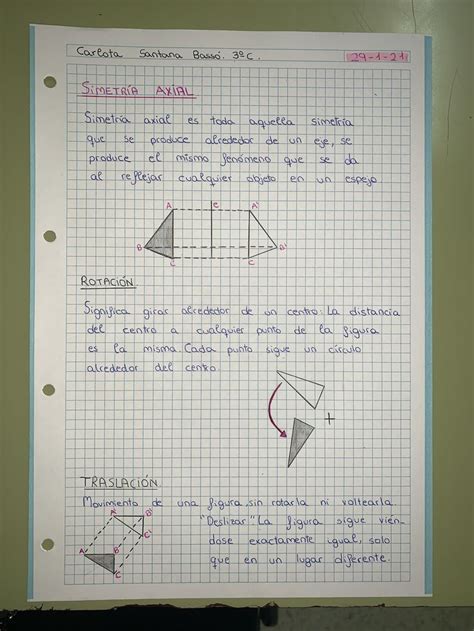 Carlota Santana Bassó. 3ºC. 29-1-21
SIMETRÍA AXIAL
Simetría axial es toda aquella simetría
que se produce alrededor de un eje, se
produce el mismo fenómeno que se da
al reflejar cualquier objeto en un espejo
A e A'
B B'
C C'
ROTACIÓN
Significa girar alrededor de un centro. La distancia
del centro a cualquier punto de la figura
es la misma. Cada punto sigue un círculo
alrededor del centro.
+
TRASLACIÓN
Movimiento de una figura, sin rotarla ni voltearla.
"Deslizar" La figura sigue vién-
dose exactamente igual, solo
que en un lugar diferente.
A' B'
C'
A B
C